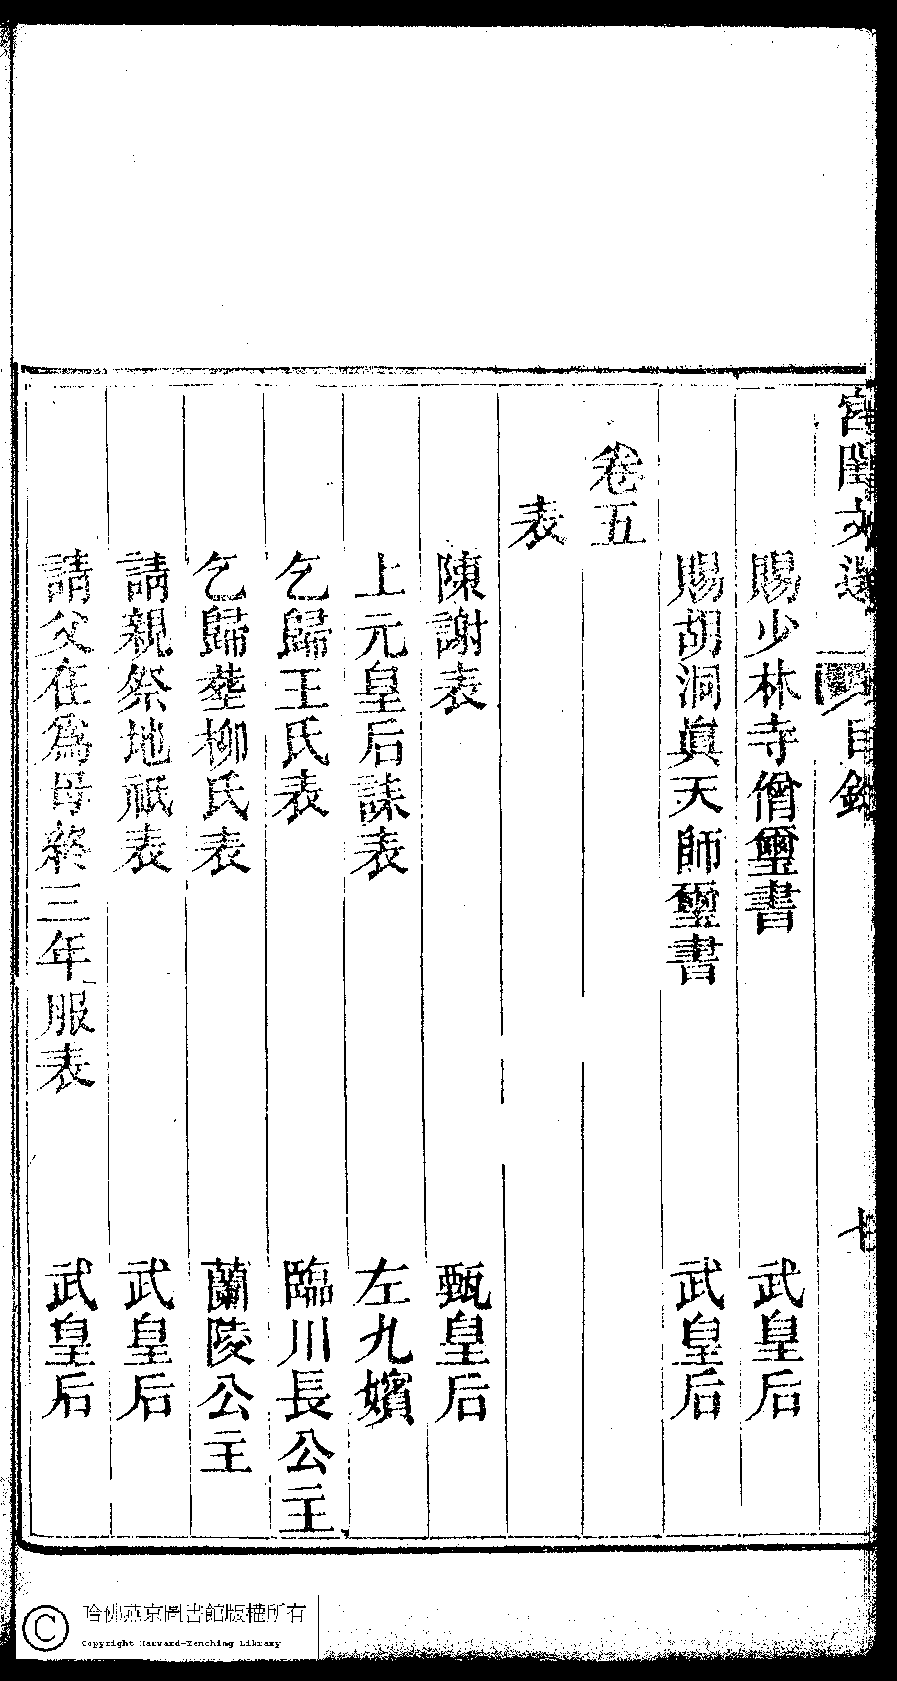 宮閨文選　目錄　七
賜少林寺僧璽書　武皇后
賜胡洞真天師璽書　武皇后
卷五
表
陳謝表　甄皇后
上元皇后誄表　左九嬪
乞歸王氏表　臨川長公主
乞歸塟柳氏表　蘭陵公主
請親祭地祇表　武皇后
請父在爲母終三年服表　武皇后
哈佛燕京圖書館版權所有
Copyright Harvard-Yenching Library